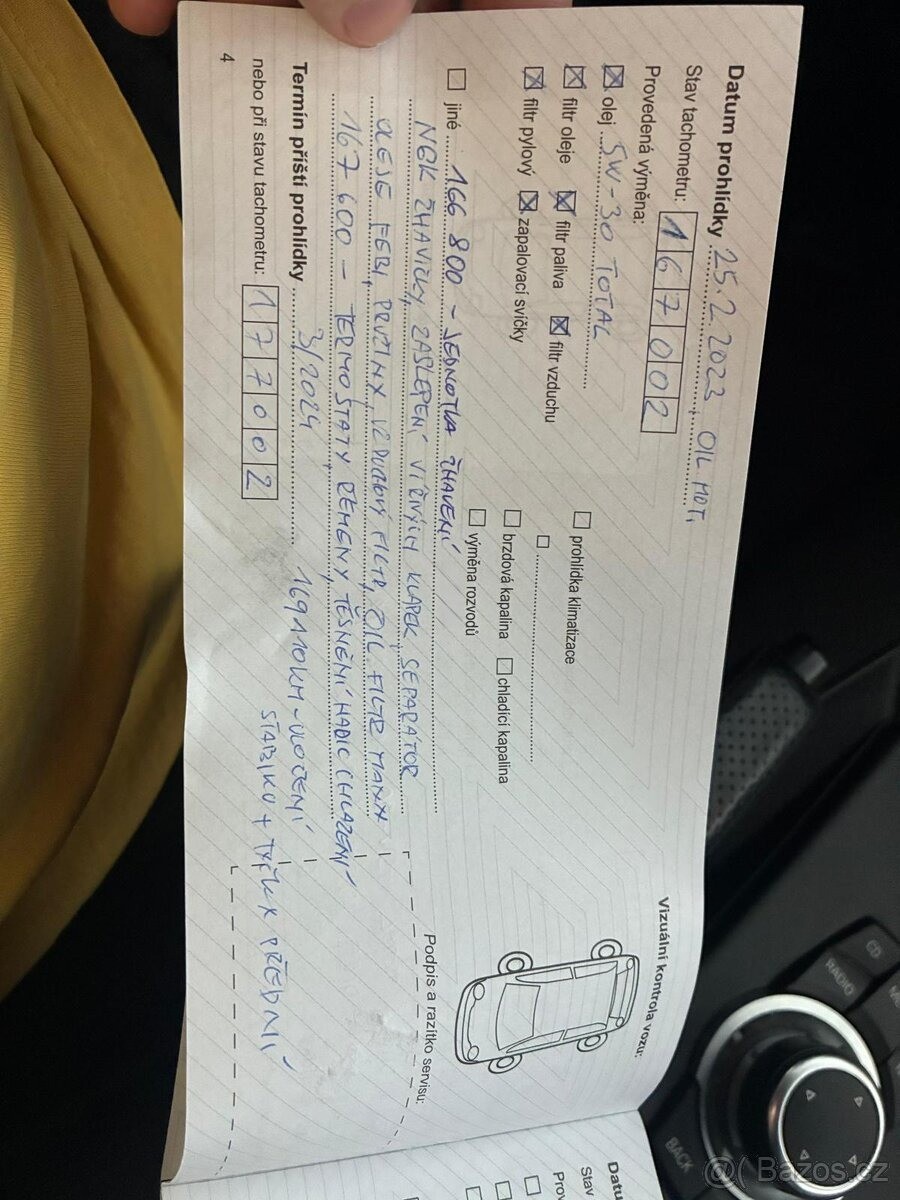 Datum prohlídky 25.2.2023, OIL MOT.
Stav tachometru: 167002
Provedená výměna:
☒ olej 5W-30 TOTAL
☒ filtr oleje ☒ filtr paliva ☒ filtr vzduchu
☒ filtr pylový ☒ zapalovací svíčky
☐ prohlídka klimatizace
☐
☐ brzdová kapalina ☐ chladící kapalina
☐ výměna rozvodů
☐ jiné 166 800 - JEDNOTKA ŽHAVENÍ
NGK ŽHAVIČKY, ZASLEPENÍ VÍŘIVÝCH KLAPEK, SEPARÁTOR
OLEJE FEBI, PRUŽINY, VZDUCHOVÝ FILTR, OIL FILTR MANN
167 600 - TERMOSTATY, ŘEMENY, TĚSNĚNÍ HADIC CHLAZENÍ
Termín příští prohlídky 3/2024
nebo při stavu tachometru: 177002
169110KM - ULOŽENÍ
STABIKU + TYČKY PŘEDNÍ
4
Vizuální kontrola vozu:
Podpis a razítko servisu:
Datu
Stav
Prov
CD
RADIO
BACK
@( Bazos.cz